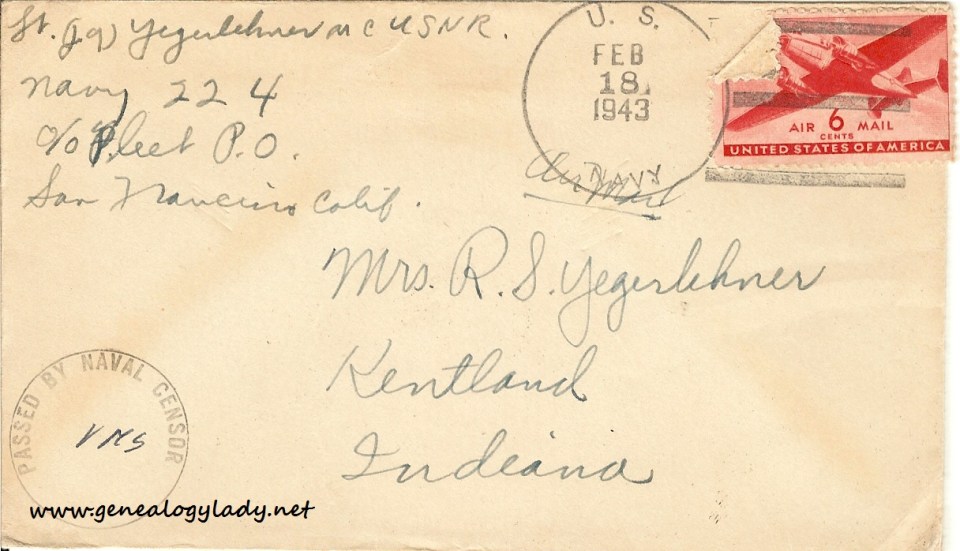 Lt. (jg) Yegerlehner MC USNR.
Navy 224
c/o Fleet P.O.
San Francisco Calif.
U. S.
FEB
18
1943
NAVY
Air Mail
AIR 6 MAIL
CENTS
UNITED STATES OF AMERICA
Mrs. R. S. Yegerlehner
Kentland
Indiana
PASSED BY NAVAL CENSOR
VMS
www.genealogylady.net